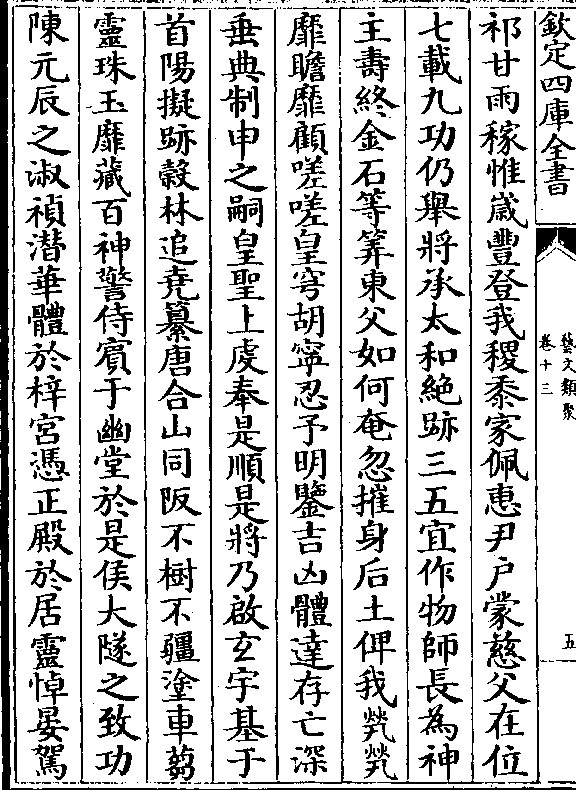 欽定四庫全書
藝文類聚
卷十三
五
祁甘雨稼惟歲豐登我稷黍家佩惠尹户蒙慈父在位
七載九功仍舉將承太和絶跡三五宜作物師長為神
主壽終金石等筭東父如何奄忽摧身后土俾我煢煢
靡瞻靡顧嗟嗟皇穹胡寧忍予明鑒吉凶體達存亡深
垂典制申之嗣皇聖上虔奉是順是將乃啟玄宇基于
首陽擬跡榖林追堯纂唐合山同阪不樹不疆塗車芻
靈珠玉靡藏百神警侍賓于幽堂於是俟大隧之致功
陳元辰之淑禎潛華體於梓宮憑正殿於居靈悼晏駕